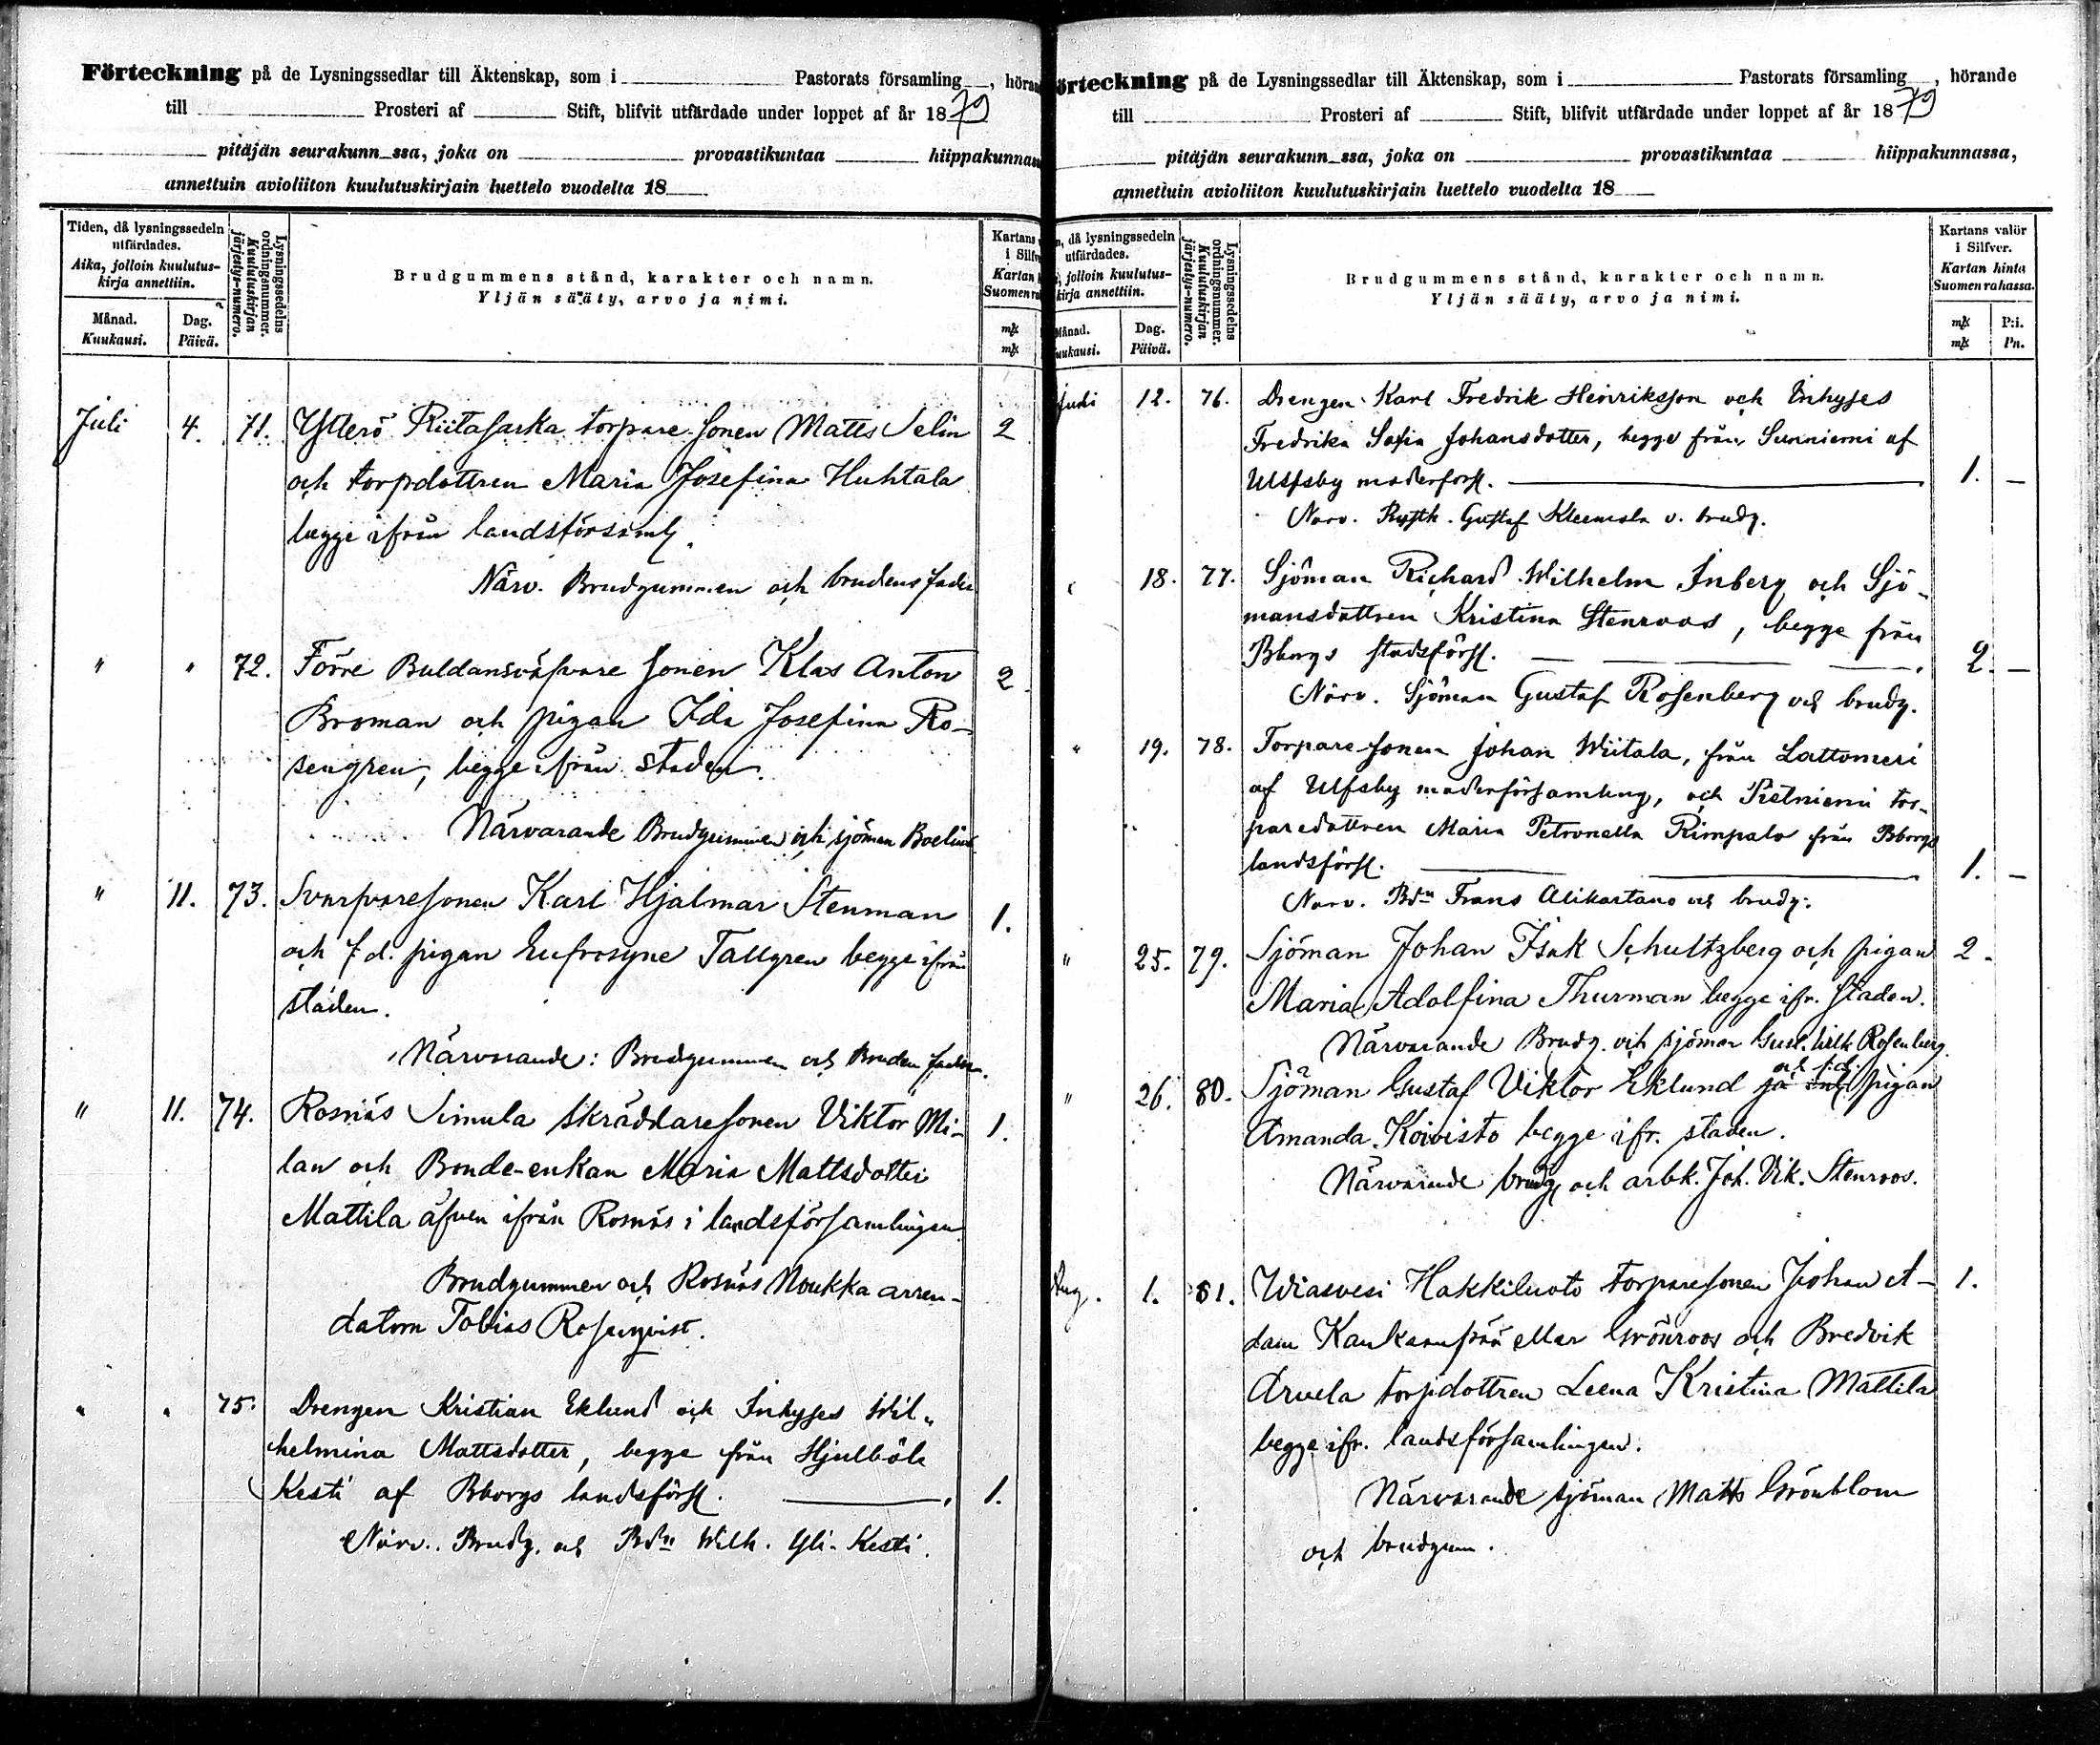 Förteckning på de Lysningssedlar till Äktenskap, som i Pastorats församling, höran
till Prosteri af Stift, blifvit utfärdade under loppet af år 1879
pitäjän seurakunn_ssa, joka on provastikuntaa hiippakunnan
annettuin avioliiton kuulutuskirjain luettelo vuodelta 18
Tiden, då lysningssedeln utfärdades.
Aika, jolloin kuulutus-
kirja annettiin.
Månad.
Kuukausi.
Dag.
Päivä.
Lysningssedelns
ordningsnummer.
Kuulutuskirjan
järjestys-numero.
Brudgummens stånd, karakter och namn.
Yljän sääty, arvo ja nimi.
Kartans
i Silfv
Kartan
Suomen ra
mk
mk
Juli 4. 71. Ytterö Riitasarka torpare sonen Matts Selin 2
och torpdottren Maria Josefina Huhtala
begge ifrån landsförsaml.
Närv. Brudgummen och brudens fader
" " 72. Förre Buldansväfvare sonen Klas Anton 2.
Broman och pigan Ida Josefina Ro-
sengren, begge ifrån staden.
Närvarande Brudgummen och sjöman Boelius
" 11. 73. Svarfvaresonen Karl Hjalmar Stenman 1.
och f.d. pigan Eufrosyne Tallgren begge ifrån
staden.
Närvarande: Brudgummen och Bruden fader.
" 11. 74. Rosnäs Simula skräddaresonen Viktor Mi- 1.
lan och Bonde-enkan Maria Mattsdotter
Mattila äfven ifrån Rosnäs i landsförsamlingen
Brudgummen och Rosnäs Noukka arren-
datorn Tobias Rosenqvist.
" " 75. Drengen Kristian Eklund och Inhyses Wil-
helmina Mattsdotter, begge från Hjulböle
Kesti af Bborgs landsförs. 1.
Närv. Brudg. och Bdn Wilh. Yli-Kesti.
örteckning på de Lysningssedlar till Äktenskap, som i Pastorats församling, hörande
till Prosteri af Stift, blifvit utfärdade under loppet af år 1879
pitäjän seurakunn_ssa, joka on provastikuntaa hiippakunnassa,
annettuin avioliiton kuulutuskirjain luettelo vuodelta 18
n, då lysningssedeln
utfärdades.
, jolloin kuulutus-
kirja annettiin.
Månad.
uukausi.
Dag.
Päivä.
Lysningssedelns
ordningsnummer.
Kuulutuskirjan
järjestys-numero.
Brudgummens stånd, karakter och namn.
Yljän sääty, arvo ja nimi.
Kartans valör
i Silfver.
Kartan hinta
Suomen rahassa.
mk P:i.
mk Pn.
Juli 12. 76. Drengen Karl Fredrik Henriksson och Inhyses
Fredrika Sofia Johansdotter, begge från Sunniemi af
Ulfsby moderförs. 1. —
Närv. Rusth. Gustaf Kleemola o. brudg.
" 18. 77. Sjöman Richard Wilhelm Inberg och Sjö-
mansdottren Kristina Stenroos, begge från
Bborgs stadsförs. 2. —
Närv. Sjöman Gustaf Rosenberg och brudg.
" 19. 78. Torpare sonen Johan Wiitala, från Lattomeri
af Ulfsby moderförsamling, och Pietniemi tor-
paredottren Maria Petronella Rimpalo från Bborgs
landsförs. 1. —
Närv. Bdn Frans Alikartano och brudg.
" 25. 79. Sjöman Johan Isak Schultzberg och pigan 2.
Maria Adolfina Thurman begge ifr. staden.
Närvarande Brudg. och sjöman Gust. Wilh. Rosenberg.
" 26. 80. Sjöman Gustaf Viktor Eklund och f.d. pigan
Amanda Koivisto begge ifr. staden.
Närvarande brudg och arbk. Joh. Vik. Stenroos.
Aug. 1. 81. Wiasvesi Hakkiluoto torparesonen Johan A- 1.
dam Kankaanpää eller Grönroos och Bredvik
Arvela torpdottren Leena Kristina Mattila
begge ifr. landsförsamlingen.
Närvarande sjöman Matts Grönblom
och brudgum.